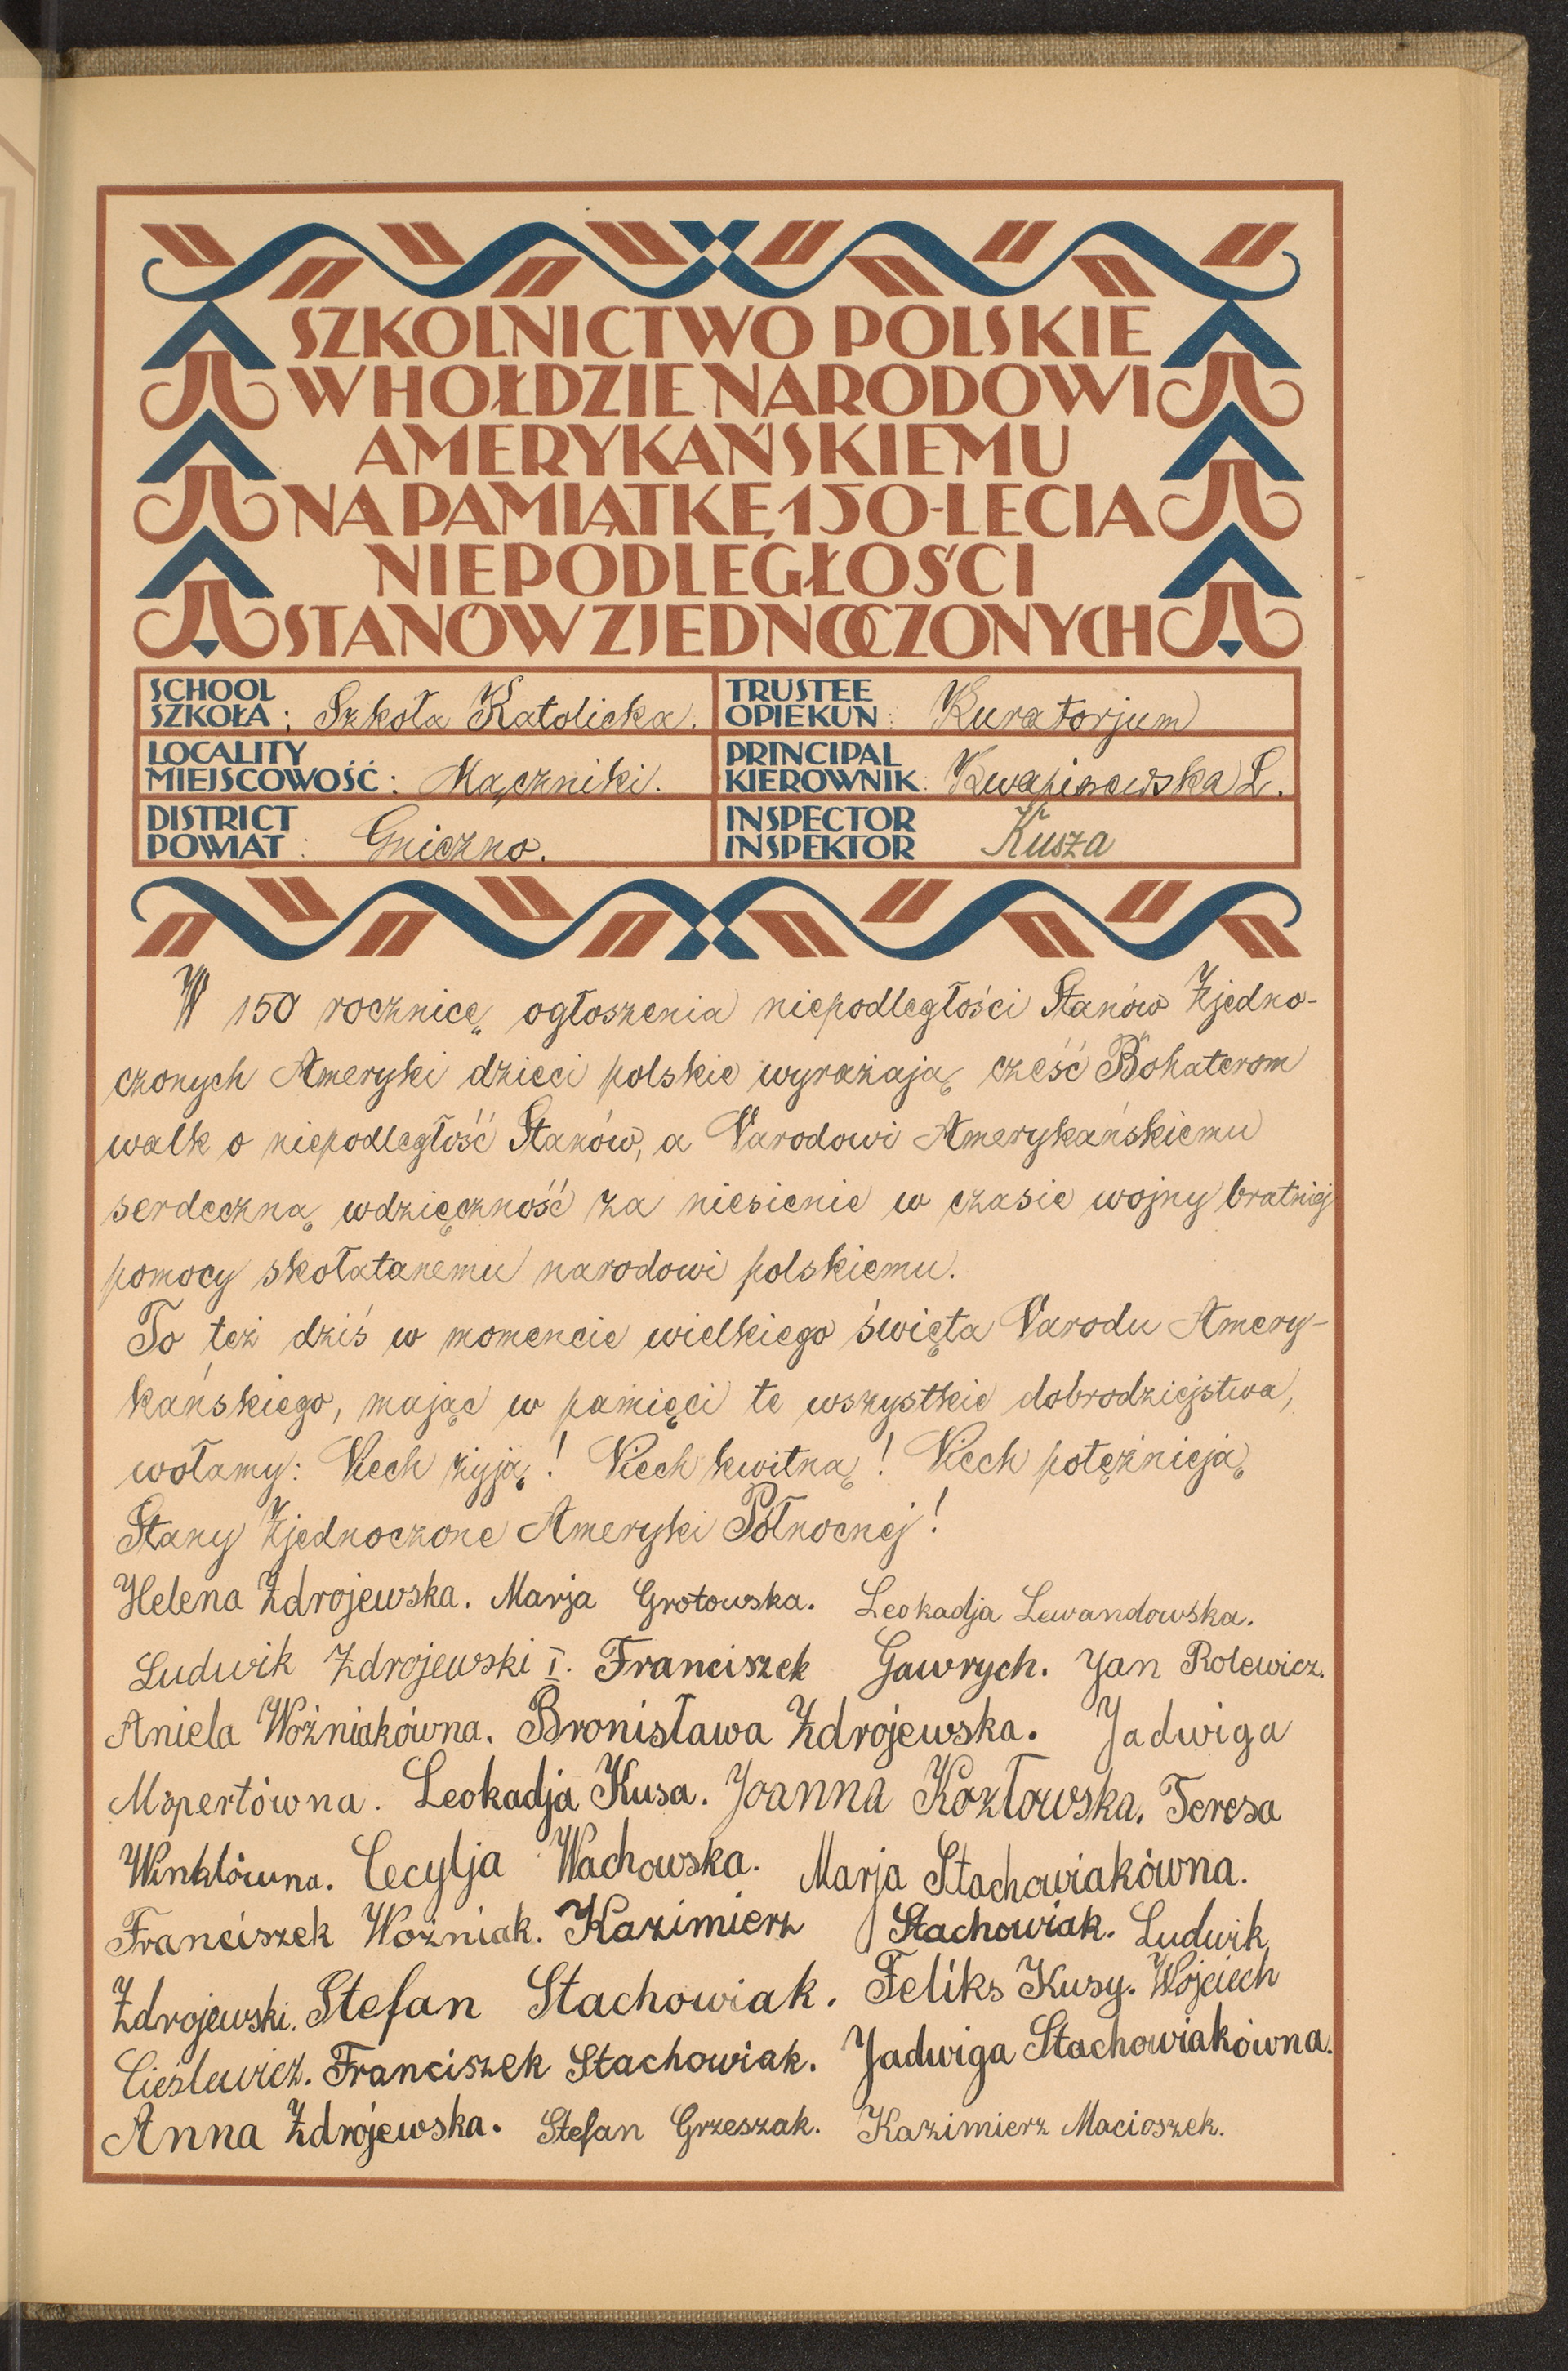 SZKOLNICTWO POLSKIE
W HOŁDZIE NARODOWI
AMERYKAŃSKIEMU
NA PAMIĄTKĘ 150-LECIA
NIEPODLEGŁOŚCI
STANÓW ZJEDNOCZONYCH
SCHOOL
SZKOŁA: Szkoła Katolicka.
TRUSTEE
OPIEKUN: Kuratorjum
LOCALITY
MIEJSCOWOŚĆ: Mączniki.
PRINCIPAL
KIEROWNIK: Kwapiszewska L.
DISTRICT
POWIAT: Gniezno.
INSPECTOR
INSPEKTOR Kusza
W 150 rocznicę ogłoszenia niepodległości Stanów Zjedno-
czonych Ameryki dzieci polskie wyrażają cześć Bohaterom
walk o niepodległość Stanów, a Narodowi Amerykańskiemu
serdeczną wdzięczność za niesienie w czasie wojny bratniej
pomocy skołatanemu narodowi polskiemu.
To też dziś w momencie wielkiego święta Narodu Amery-
kańskiego, mając w pamięci te wszystkie dobrodziejstwa,
wołamy: Niech żyją! Niech kwitną! Niech potężnieją
Stany Zjednoczone Ameryki Północnej!
Helena Zdrojewska. Marja Grotowska. Leokadja Lewandowska.
Ludwik Zdrojewski I. Franciszek Gawrych. Jan Rolewicz.
Aniela Woźniakówna. Bronisława Zdrojewska. Jadwiga
Mopertówna. Leokadja Kusa. Joanna Kozłowska. Teresa
Winklówna. Cecylja Wachowska. Marja Stachowiakówna.
Franciszek Woźniak. Kazimierz Stachowiak. Ludwik
Zdrojewski. Stefan Stachowiak. Feliks Kusy. Wojciech
Cieślewicz. Franciszek Stachowiak. Jadwiga Stachowiakówna.
Anna Zdrojewska. Stefan Grzeszak. Kazimierz Macioszek.